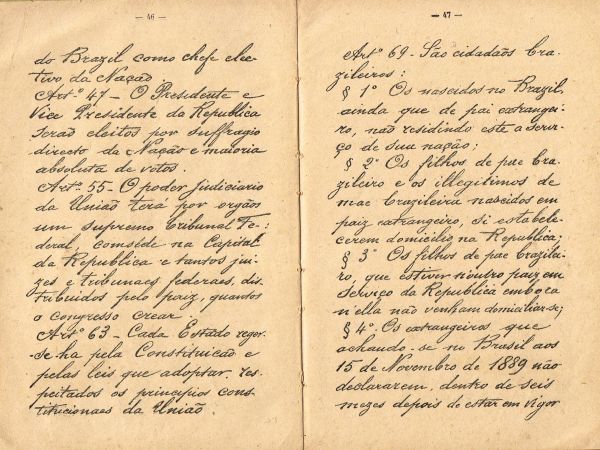 — 46 —
do Brazil como chefe elec-
tivo da Nação.
Artº 47 — O Presidente e
Vice Presidente da Republica
serão eleitos por suffragio
directo da Nação e maioria
absoluta de votos.
Artº 55 — O poder judiciario
da União terá por orgãos
um Supremo Tribunal Fe-
deral, com séde na Capital
da Republica e tantos jui-
zes e tribunaes federaes, dis-
tribuidos pelo paiz, quantos
o congresso crear.
Artº 63 — Cada Estado reger-
se-ha pela Constituição e
pelas leis que adoptar, res-
peitados os principios cons-
titucionaes da União.
— 47 —
Artº 69 — São cidadãos bra-
zileiros:
§ 1º Os nascidos no Brazil,
ainda que de pai extrangei-
ro, não residindo este a servi-
ço de sua nação;
§ 2º Os filhos de pae bra-
zileiro e os illegitimos de
mae brazileira nascidos em
paiz extrangeiro, si estabele-
cerem domicilio na Republica;
§ 3º Os filhos de pae brazilei-
ro, que estiver n'outro paiz em
serviço da Republica embora
n'ella não venham domiciliar-se;
§ 4º Os extrangeiros que
achando-se no Brasil aos
15 de Novembro de 1889 não
declararem, dentro de seis
mezes depois de estar em vigor